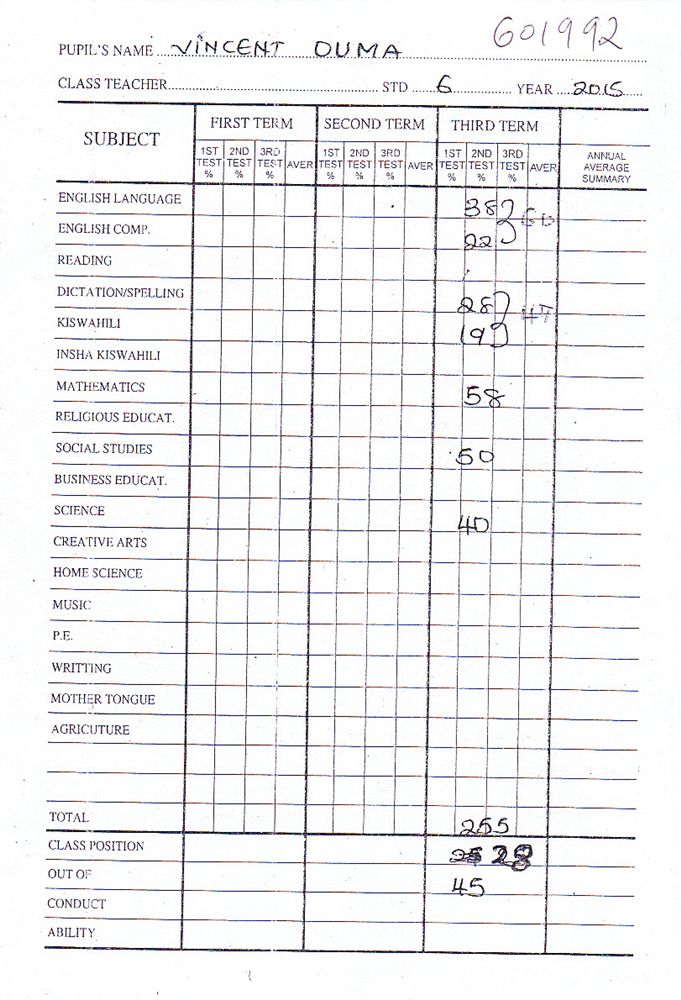 601992
PUPIL'S NAME VINCENT OUMA
CLASS TEACHER STD 6 YEAR 2015
SUBJECT FIRST TERM SECOND TERM THIRD TERM ANNUAL AVERAGE SUMMARY
1ST TEST % 2ND TEST % 3RD TEST % AVER 1ST TEST % 2ND TEST % 3RD TEST % AVER 1ST TEST % 2ND TEST % 3RD TEST % AVER
ENGLISH LANGUAGE 38 60
ENGLISH COMP. 22
READING
DICTATION/SPELLING 28 47
KISWAHILI 19
INSHA KISWAHILI
MATHEMATICS 58
RELIGIOUS EDUCAT.
SOCIAL STUDIES 50
BUSINESS EDUCAT.
SCIENCE 40
CREATIVE ARTS
HOME SCIENCE
MUSIC
P.E.
WRITTING
MOTHER TONGUE
AGRICUTURE
TOTAL 255
CLASS POSITION 28
OUT OF 45
CONDUCT
ABILITY